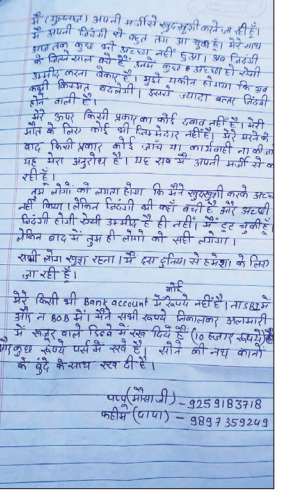 मैं (गुलफ्शा) अपनी मर्जी से खुदखुशी करने जा रही हूँ।
मैं अपनी जिंदगी से बहुत तंग आ चुकी हूँ। मेरे साथ
आज तक कुछ भी अच्छा नहीं हुआ। अब जिंदगी
के जितने साल बचे हैं उनमें कुछ अच्छा हो ऐसी
उम्मीद करना बेकार है। मुझे यकीन होगया कि अब
कभी किस्मत बदलेगी। इससे ज्यादा बत्तर जिंदगी
होने वाली है।
मेरे ऊपर किसी प्रकार का कोई दबाव नहीं है। मेरी
मौत के लिए कोई भी जिम्मेदार नहीं है। मेरे मरने के
बाद किसी प्रकार कोई जांच या कार्यवाही ना की जाए
यह मेरा अनुरोध है। यह सब मैं अपनी मर्जी से कर
रही हूँ।
तुम लोगों को लगता होगा कि मैंने खुदखुशी करके अच्छा
नहीं किया। लेकिन जिंदगी भी कहाँ बची है और अच्छी
जिंदगी होगी ऐसी उम्मीद है ही नहीं। मैं टूट चुकी हूँ।
लेकिन बाद में तुम ही लोगों को सही लगेगा।
सभी लोग खुश रहना। मैं इस दुनिया से हमेशा के लिए
जा रही हूँ।
मेरे किसी भी Bank account में कोई रूपये नहीं है। ना SBI में
और न BOB में। मैंने सभी रूपये निकालकर अलमारी
में खजूर वाले डिब्बे में रख दिये हैं (10 हजार रूपये)
और कुछ रूपये पर्स में रखे हैं। सोने की नथ कानों
के बुंदे के साथ रख दी है।
पप्पू (मौसाजी) - 9259183718
फहीम (पापा) - 9897359249